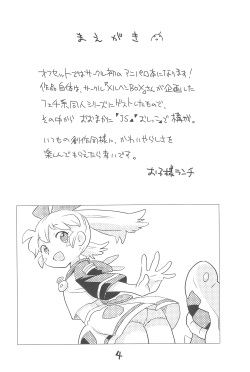 まえがき
オフセットではサークル初のアニパロ本になります!
作品自体は、サークル『メルヘンBOX』さんが企画した
フェチ系同人シリーズにゲストしたもので、
その中から おおまかに『JS』『おしっこ』で構成。
いつもの創作同様に、かわいやらしさを
楽しんでもらえたら幸いです。
お子様ランチ
4